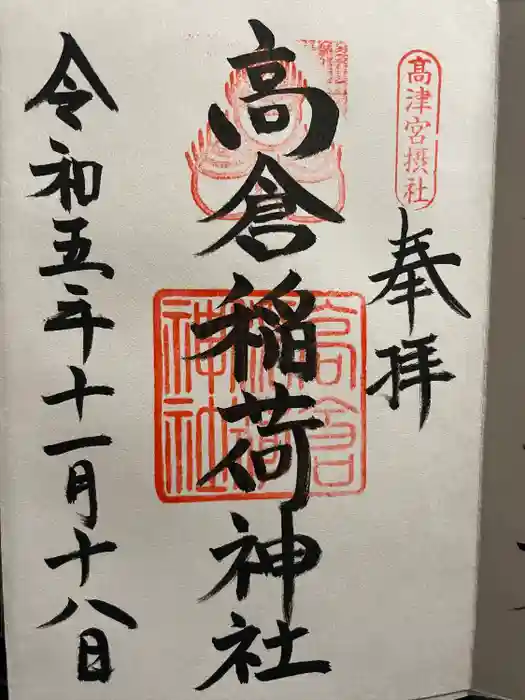 髙津宮摂社
奉拝
高倉稲荷神社
高倉
稲荷
神社
令和五年十一月十八日